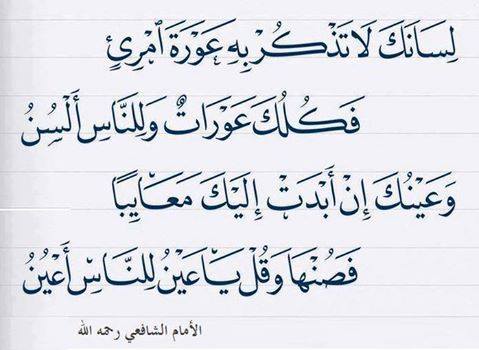 لِسَانَكَ لَا تَذْكُرْ بِهِ عَوْرَةَ ٱمْرِئٍ
فَكُلُّكَ عَوْرَاتٌ وَلِلنَّاسِ أَلْسُنُ
وَعَيْنُكَ إِنْ أَبْدَتْ إِلَيْكَ مَعَايِبًا
فَصُنْهَا وَقُلْ يَا عَيْنُ لِلنَّاسِ أَعْيُنُ
الأمام الشافعي رحمه الله